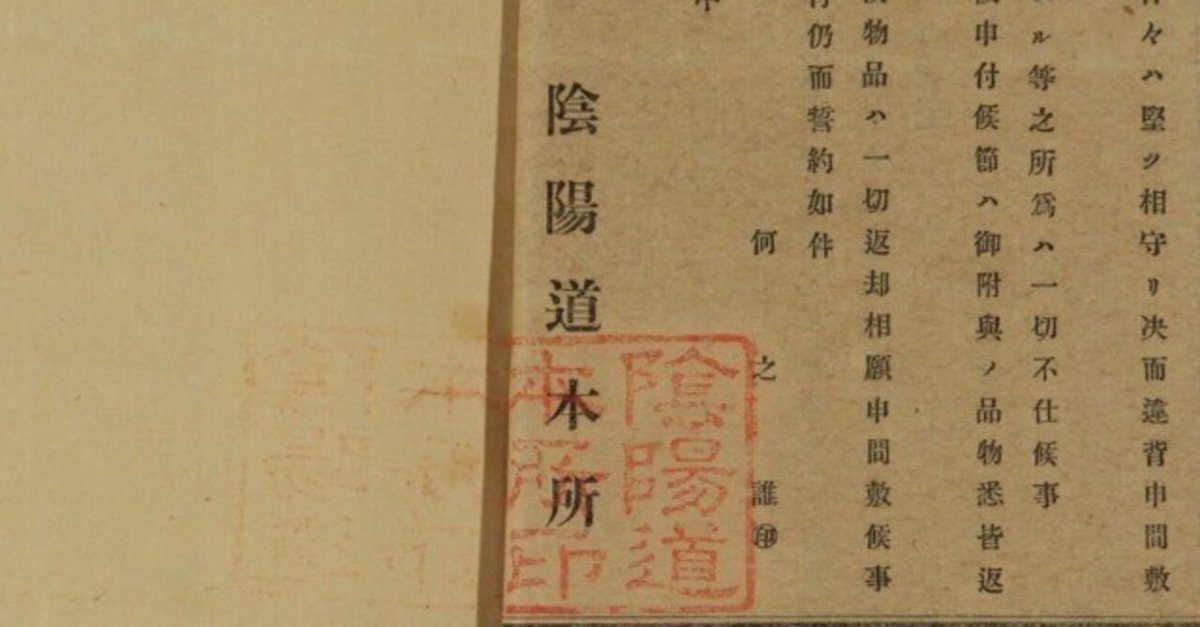 々ハ堅ク相守リ决而違背申間敷
ル等之所爲ハ一切不仕候事
申付候節ハ御附與ノ品物悉皆返
物品ハ一切返却相願申間敷候事
仍而誓約如件
何之誰㊞
陰陽道本所
陰陽道
本所印